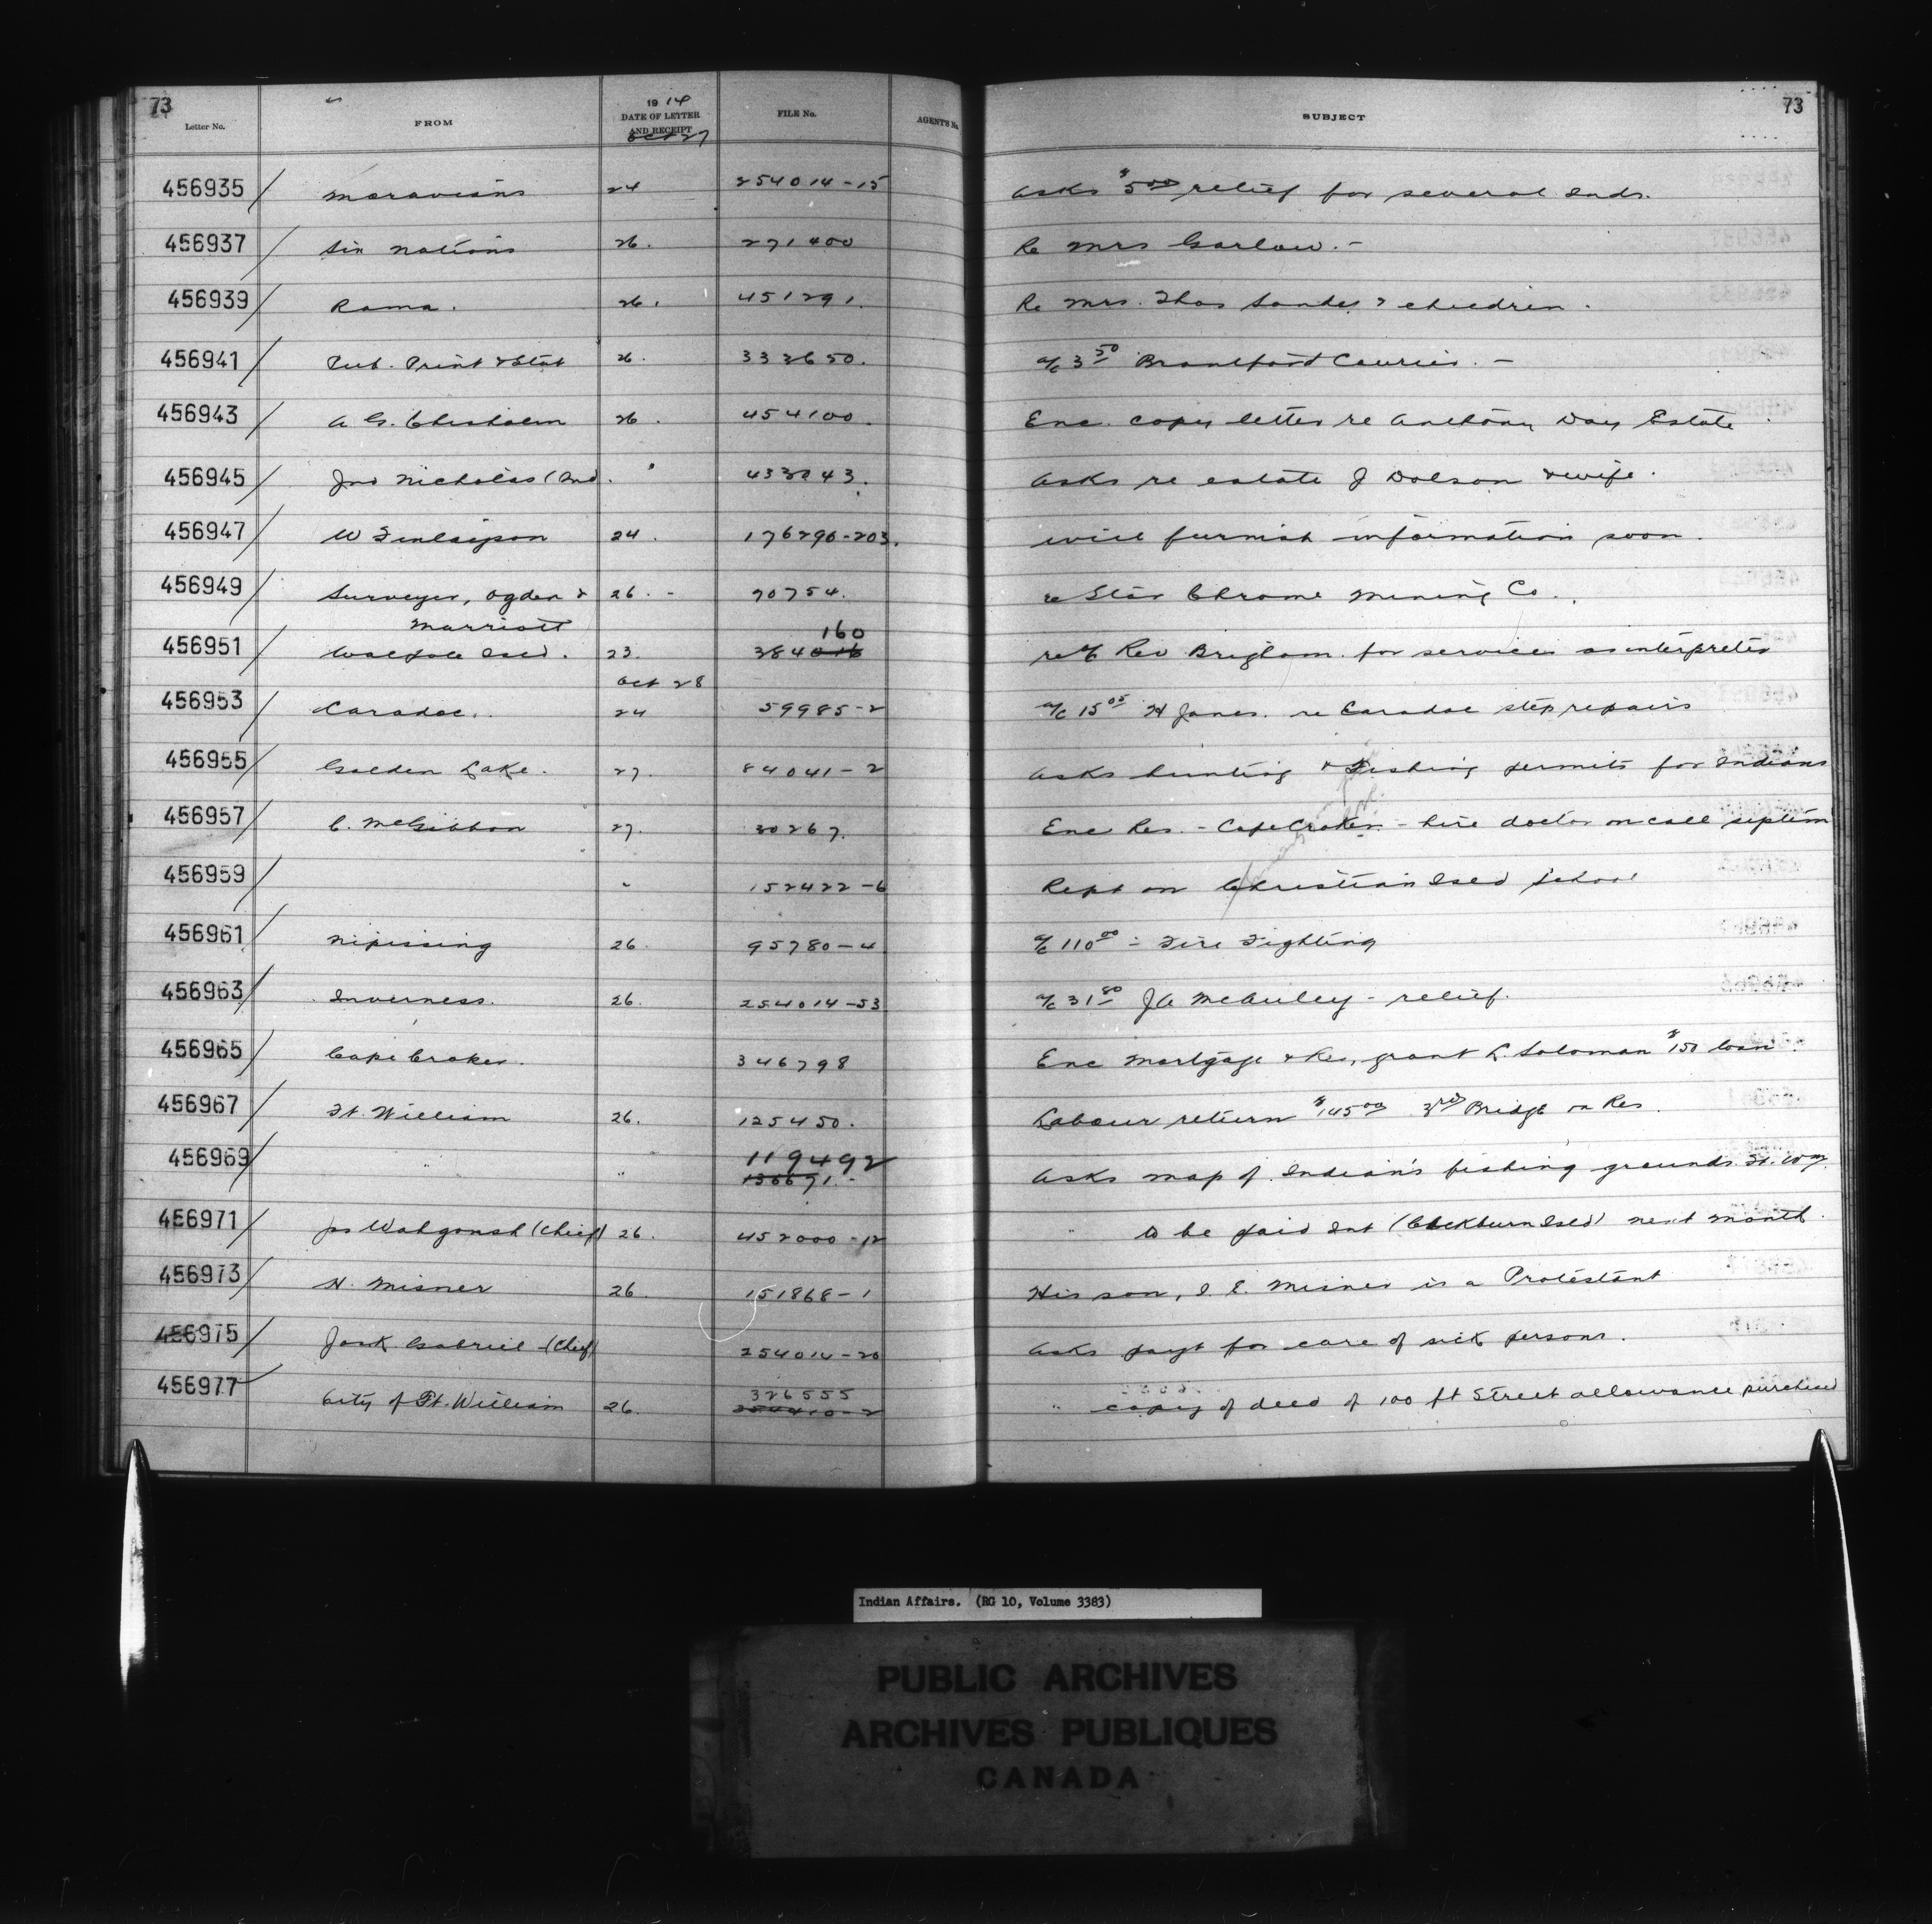 73 73
Letter No. FROM 1914 DATE OF LETTER AND RECEIPT FILE No. AGENT'S No. SUBJECT
Oct 27
456935 Moravians 24 254014-15 Asks $5.00 relief for several Inds.
456937 Six Nations 26. 271400 Re Mrs Garlow. -
456939 Rama. 26. 451291. Re Mrs. Thos Sandy & children.
456941 Pub. Print & Stat 26. 333650. a/c 3 50 Brantford Courier. -
456943 A G. Chisholm 26. 454100. Enc. copy letter re Anthony Day Estate.
456945 Jno Nicholas (Ind. " 433043. Asks re estate J Dolson & wife.
456947 W Finlayson 24. 176290-203. Will furnish information soon.
456949 Surveyer, Ogden & 26. - 70754. re Star Chrome Mining Co.
Marriott 160
456951 Walpole Isld. 23. 384016 re a/c Rev Brigham for services as interpreter
Oct 28
456953 Caradoc. 24 59985-2 a/c 15 05 H Jones. re Caradoc step repairs
456955 Golden Lake. 27. 84041-2 Asks hunting & Fishing permits for Indians
456957 C. McGibbon 27. 30267. Enc Res. - Cape Croker - hire doctor on call
456959 " 152422-6 Rept on Christian Isld School
456961 Nipissing 26. 95780-4 a/c 110 00 - Fire Fighting
456963 Inverness. 26. 254014-53 a/c 31 80 J A McAuley - relief.
456965 Cape Croker. 346798 Enc Mortgage & Res, grant L. Soloman $150 loan.
456967 Ft. William 26. 125450. Labour return $145 00 3rd Bridge on Res.
119492
456969 " " 130671. Asks map of Indian's fishing grounds Ft. Wm.
456971 Jos Wahgonsh (Chief) 26. 452000-12 " to be paid Int (Cockburn Isld) next month.
456973 N. Misner 26 151868-1 His son, I. E. Misner is a Protestant
456975 Jack Gabriel (Chief) 254014-20 Asks payt for care of sick persons.
326555
456977 City of Ft. William 26. 254410-2 " copy of deed of 100 ft Street allowance purchased
Indian Affairs. (RG 10, Volume 3383)
PUBLIC ARCHIVES
ARCHIVES PUBLIQUES
CANADA